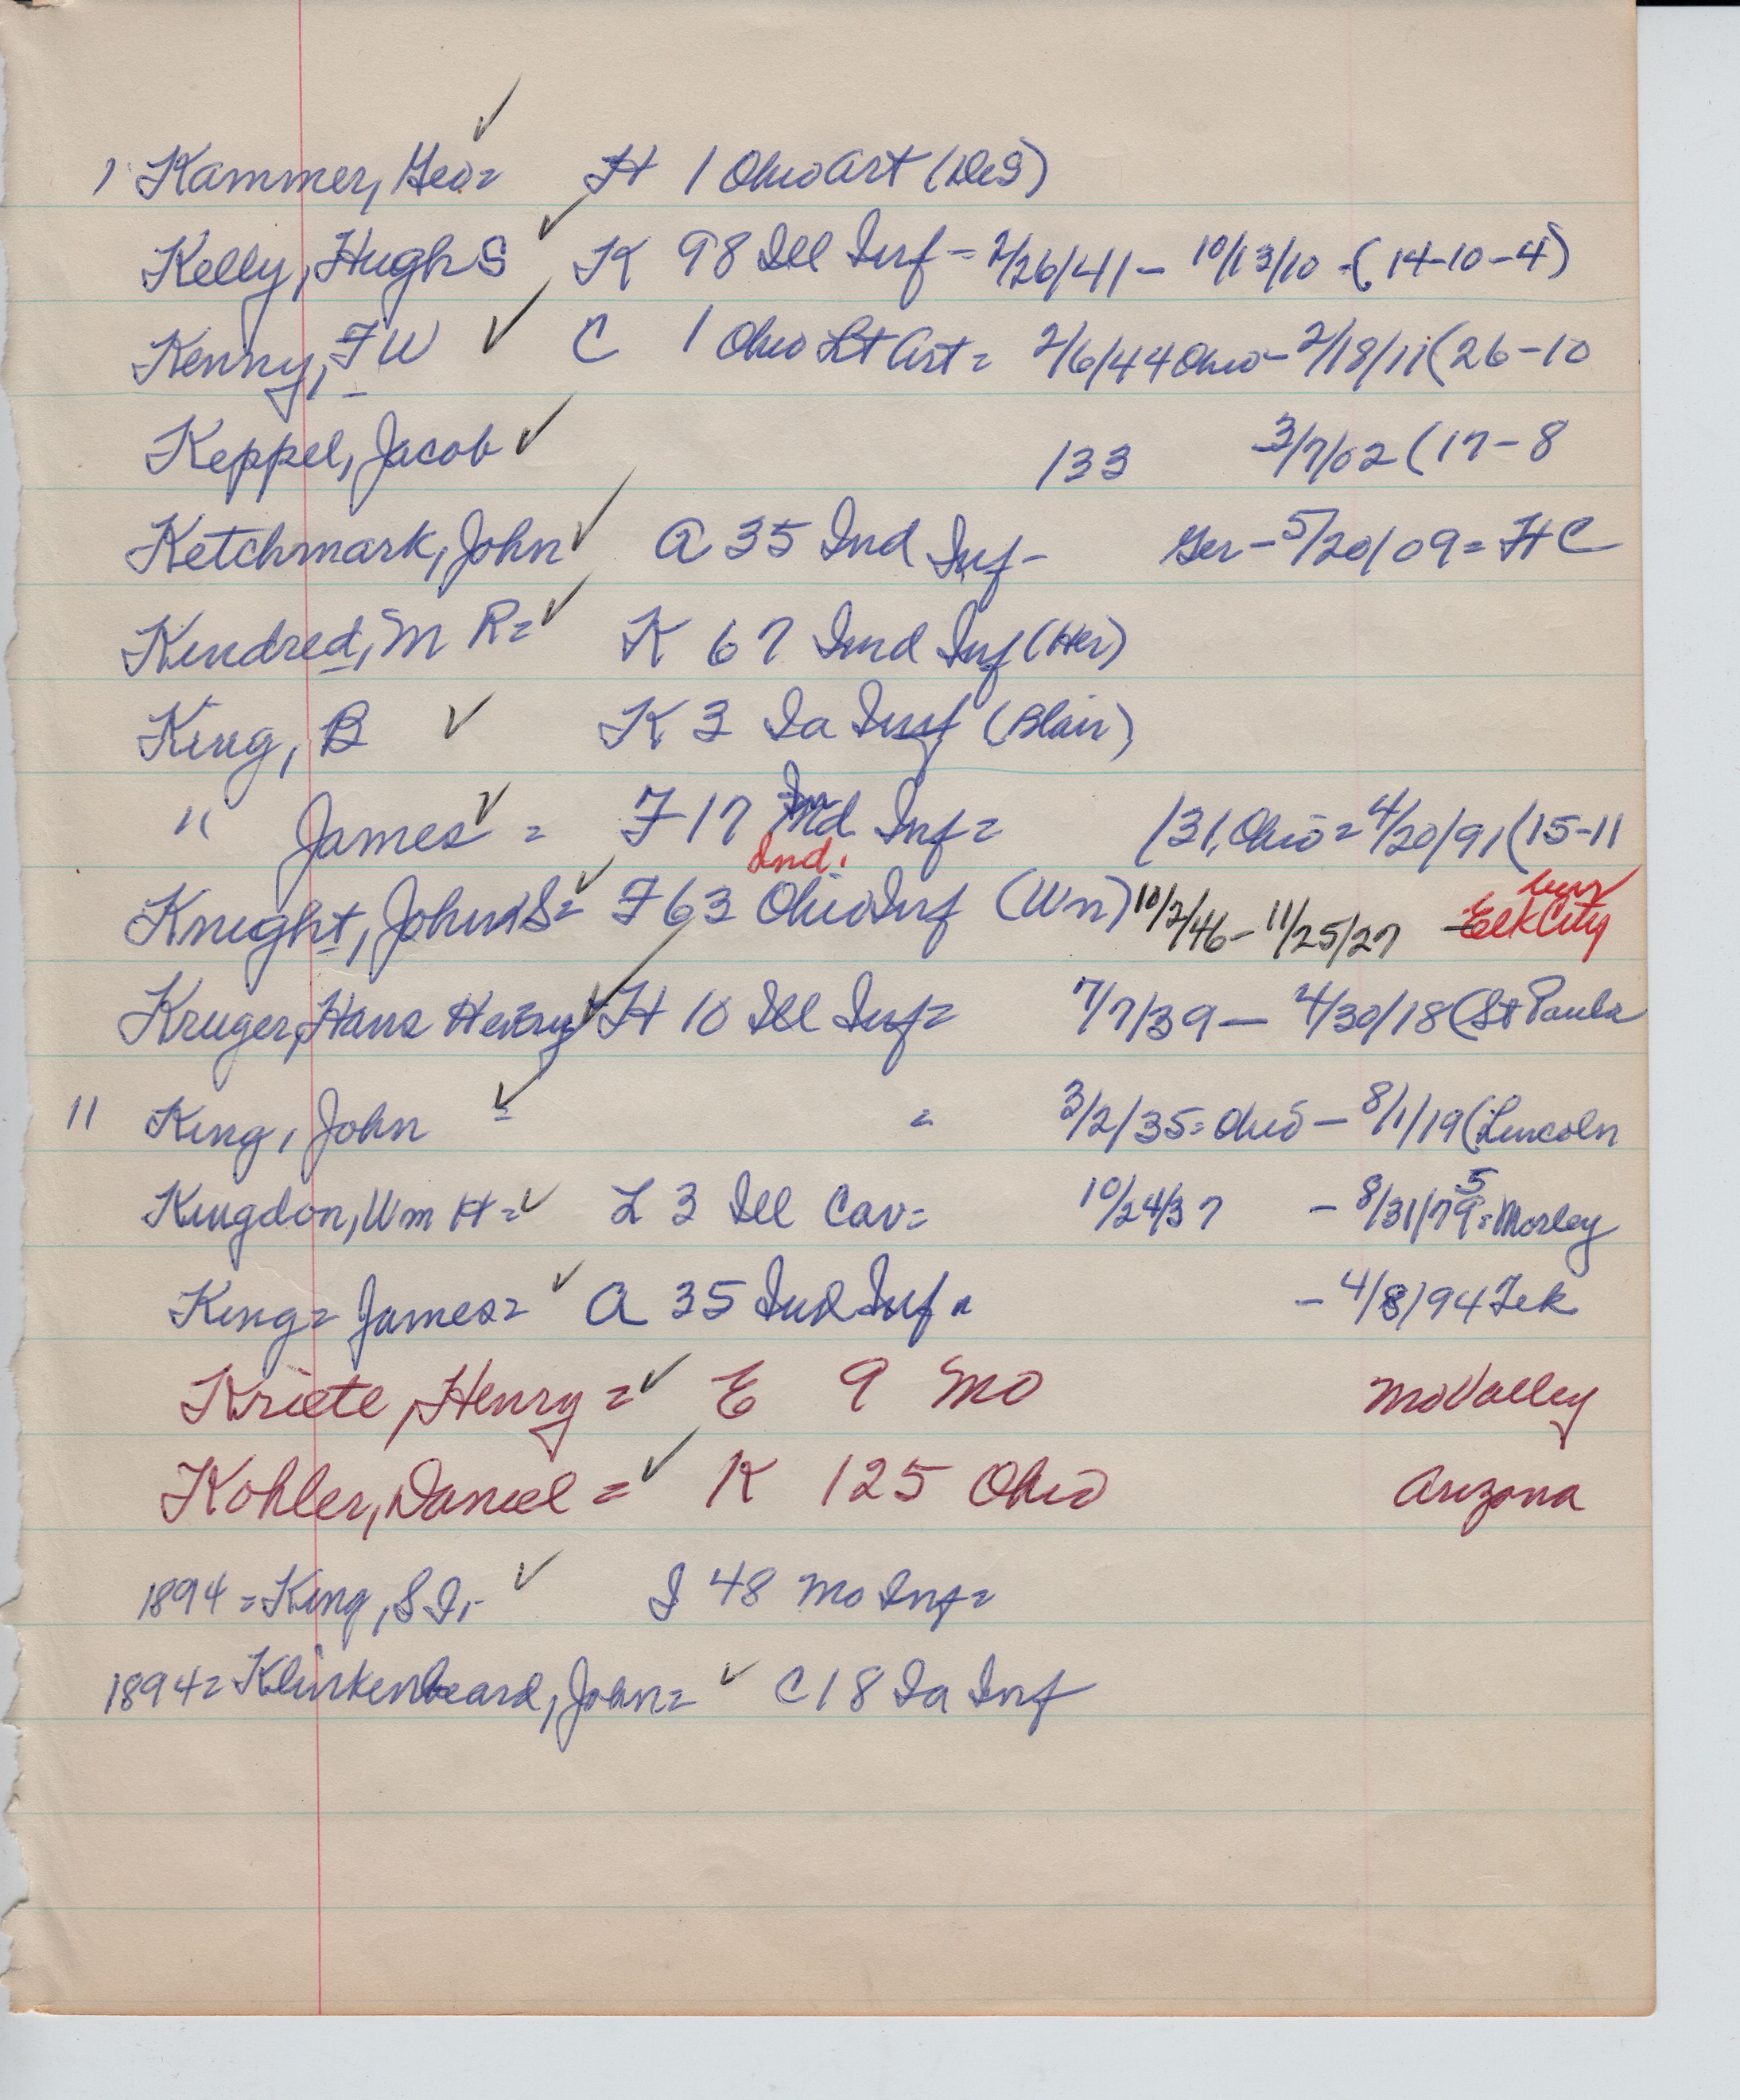 1 Kammer, Geo= ✓ H 1 Ohio Art (DeS)
Kelly, Hugh S ✓ K 98 Ill Inf - 2/26/41 - 10/13/10 - (14-10-4)
Kenny, F W ✓ C 1 Ohio Lt Art = 2/6/44 Ohio - 2/18/11 (26-10
Keppel, Jacob ✓ 133 3/7/02 (17-8
Ketchmark, John ✓ A 35 Ind Inf - Ger - 5/20/09 = H C
Kindred, M R= ✓ K 67 Ind Inf (Her)
King, B ✓ K 3 Ia Inf (Blair)
" James ✓ = F 17 Ind Inf = 131, Ohio = 4/20/91 (15-11
Ind.
Knight, John S= ✓ F 63 Ohio Inf (Wn) 10/2/46 - 11/25/27 - Elk City
Kruger, Hans Henry ✓ H 10 Ill Inf = 7/7/39 - 4/30/18 (St Pauls
11 King, John ✓ = = 3/2/35 = Ohio - 8/1/19 (Lincoln
Kingdon, Wm H= ✓ L 3 Ill Cav= 10/24/37 - 8/31/79 = Morley
5
King= James= ✓ A 35 Ind Inf = - 4/8/94 Tek
Kriete, Henry = ✓ E 9 Mo Mo Valley
Kohler, Daniel = ✓ K 125 Ohio Arizona
1894 = King, S I,- ✓ I 48 Mo Inf=
1894= Klinkenbeard, John= ✓ C 18 Ia Inf